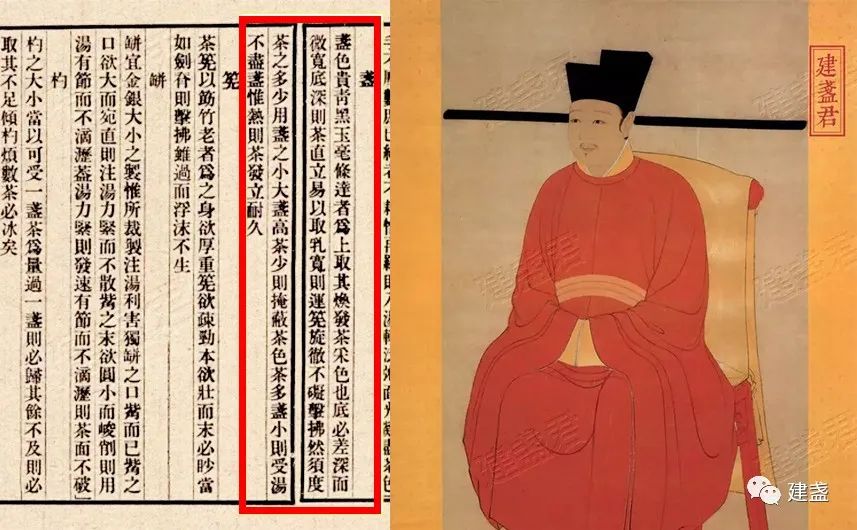 盞
盞色貴靑黑玉毫條達者爲上取其煥發茶采色也底必差深而
微寬底深則茶直立易以取乳寬則運筅旋徹不礙擊拂然須度
茶之多少用盞之小大盞高茶少則掩蔽茶色茶多盞小則受湯
不盡盞惟熱則茶發立耐久
筅
茶筅以筯竹老者爲之身欲厚重筅欲疎勁本欲壯而末必眇當
如劍脊則擊拂雖過而浮沫不生
缾
缾宜金銀大小之製惟所裁製注湯利害獨缾之口觜而已觜之
口欲大而宛直則注湯力緊而不散觜之末欲圓小而峻削則用
湯有節而不滴瀝葢湯力緊則發速有節而不滴瀝則茶面不破
杓
杓之大小當以可受一盞茶爲量過一盞則必歸其餘不及則必
取其不足傾杓煩數茶必冰矣
建盞君
建盏